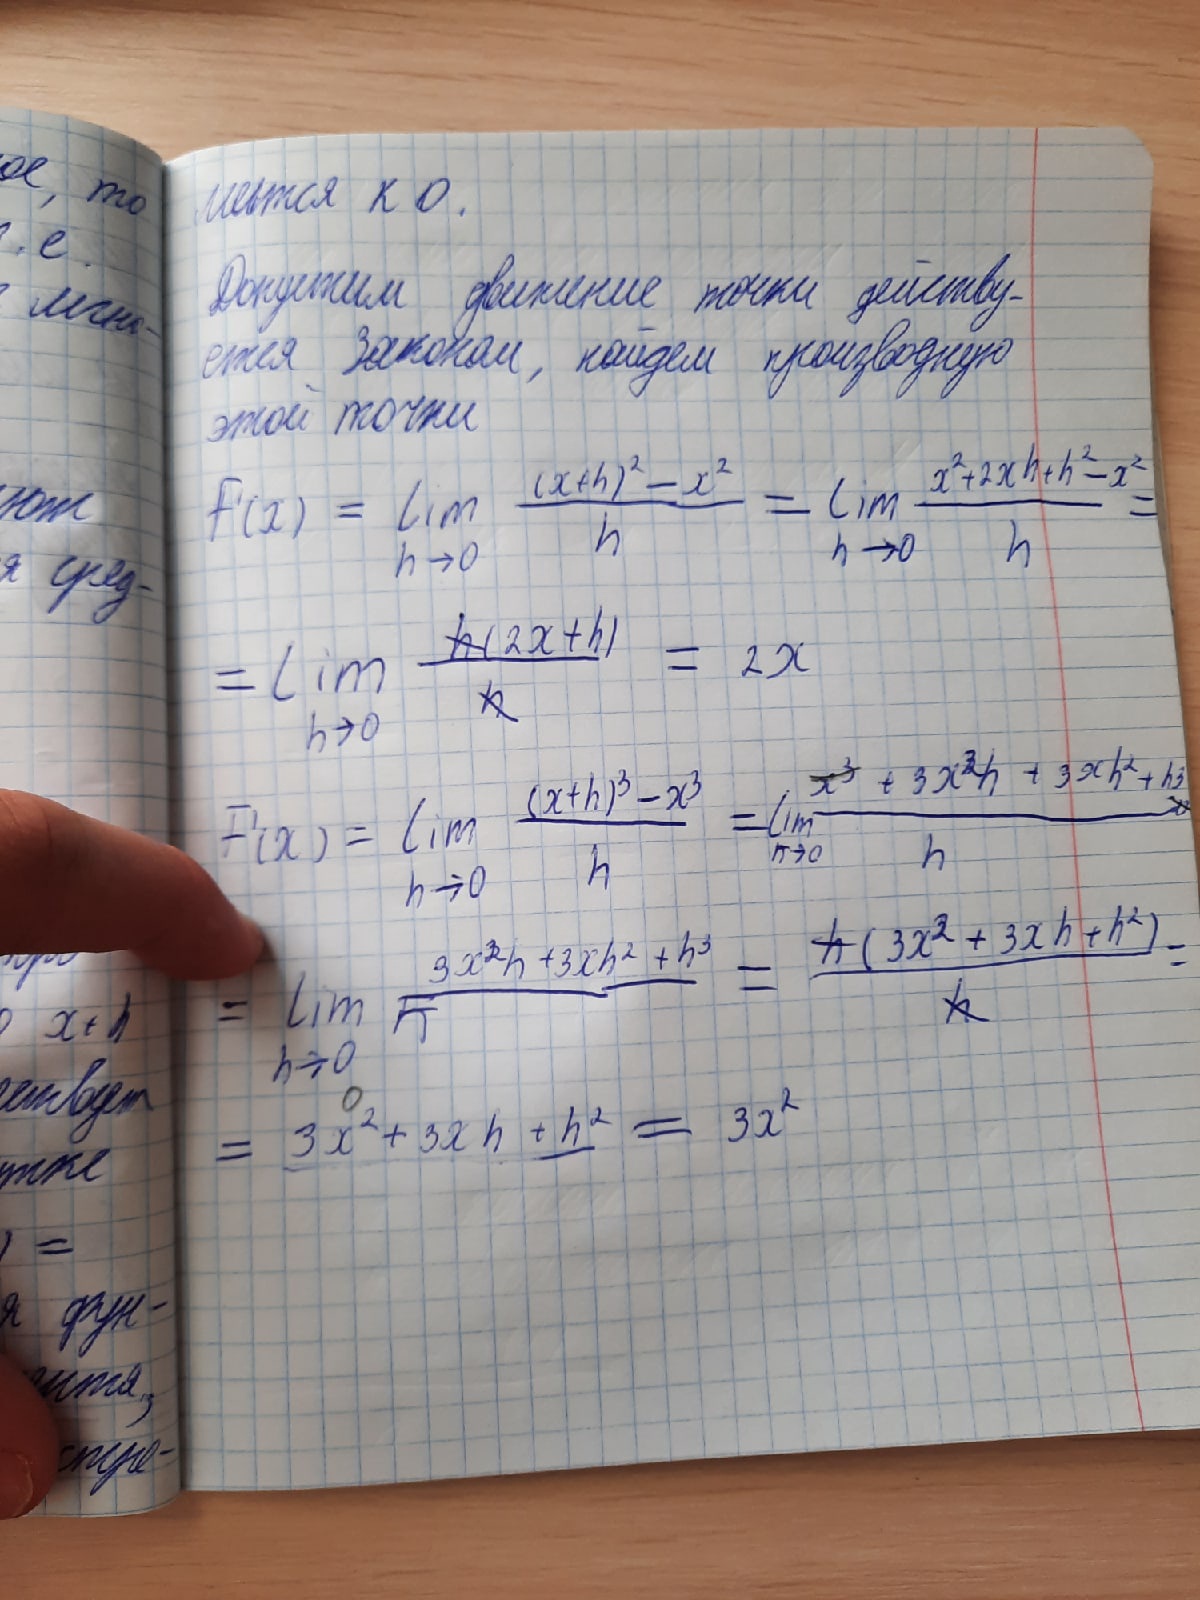 ое, то
т.е.
мгно-
ют
я сред-
о x+h
утке
) =
я фун-
стре-
мытся к 0.
Допустим движение точки действу-
ется законом, найдем производную
этой точки
F'(x) = lim h→0 (x+h)² − x² / h = lim h→0 x²+2xh+h²−x² / h =
= lim h→0 h(2x+h) / h = 2x
F'(x) = lim h→0 (x+h)³ − x³ / h = lim h→0 x³ + 3x²h + 3xh² + h³ / h
= lim h→0 3x²h + 3xh² + h³ / h = h(3x² + 3xh + h²) / h =
= 3x² + 3xh + h² = 3x²